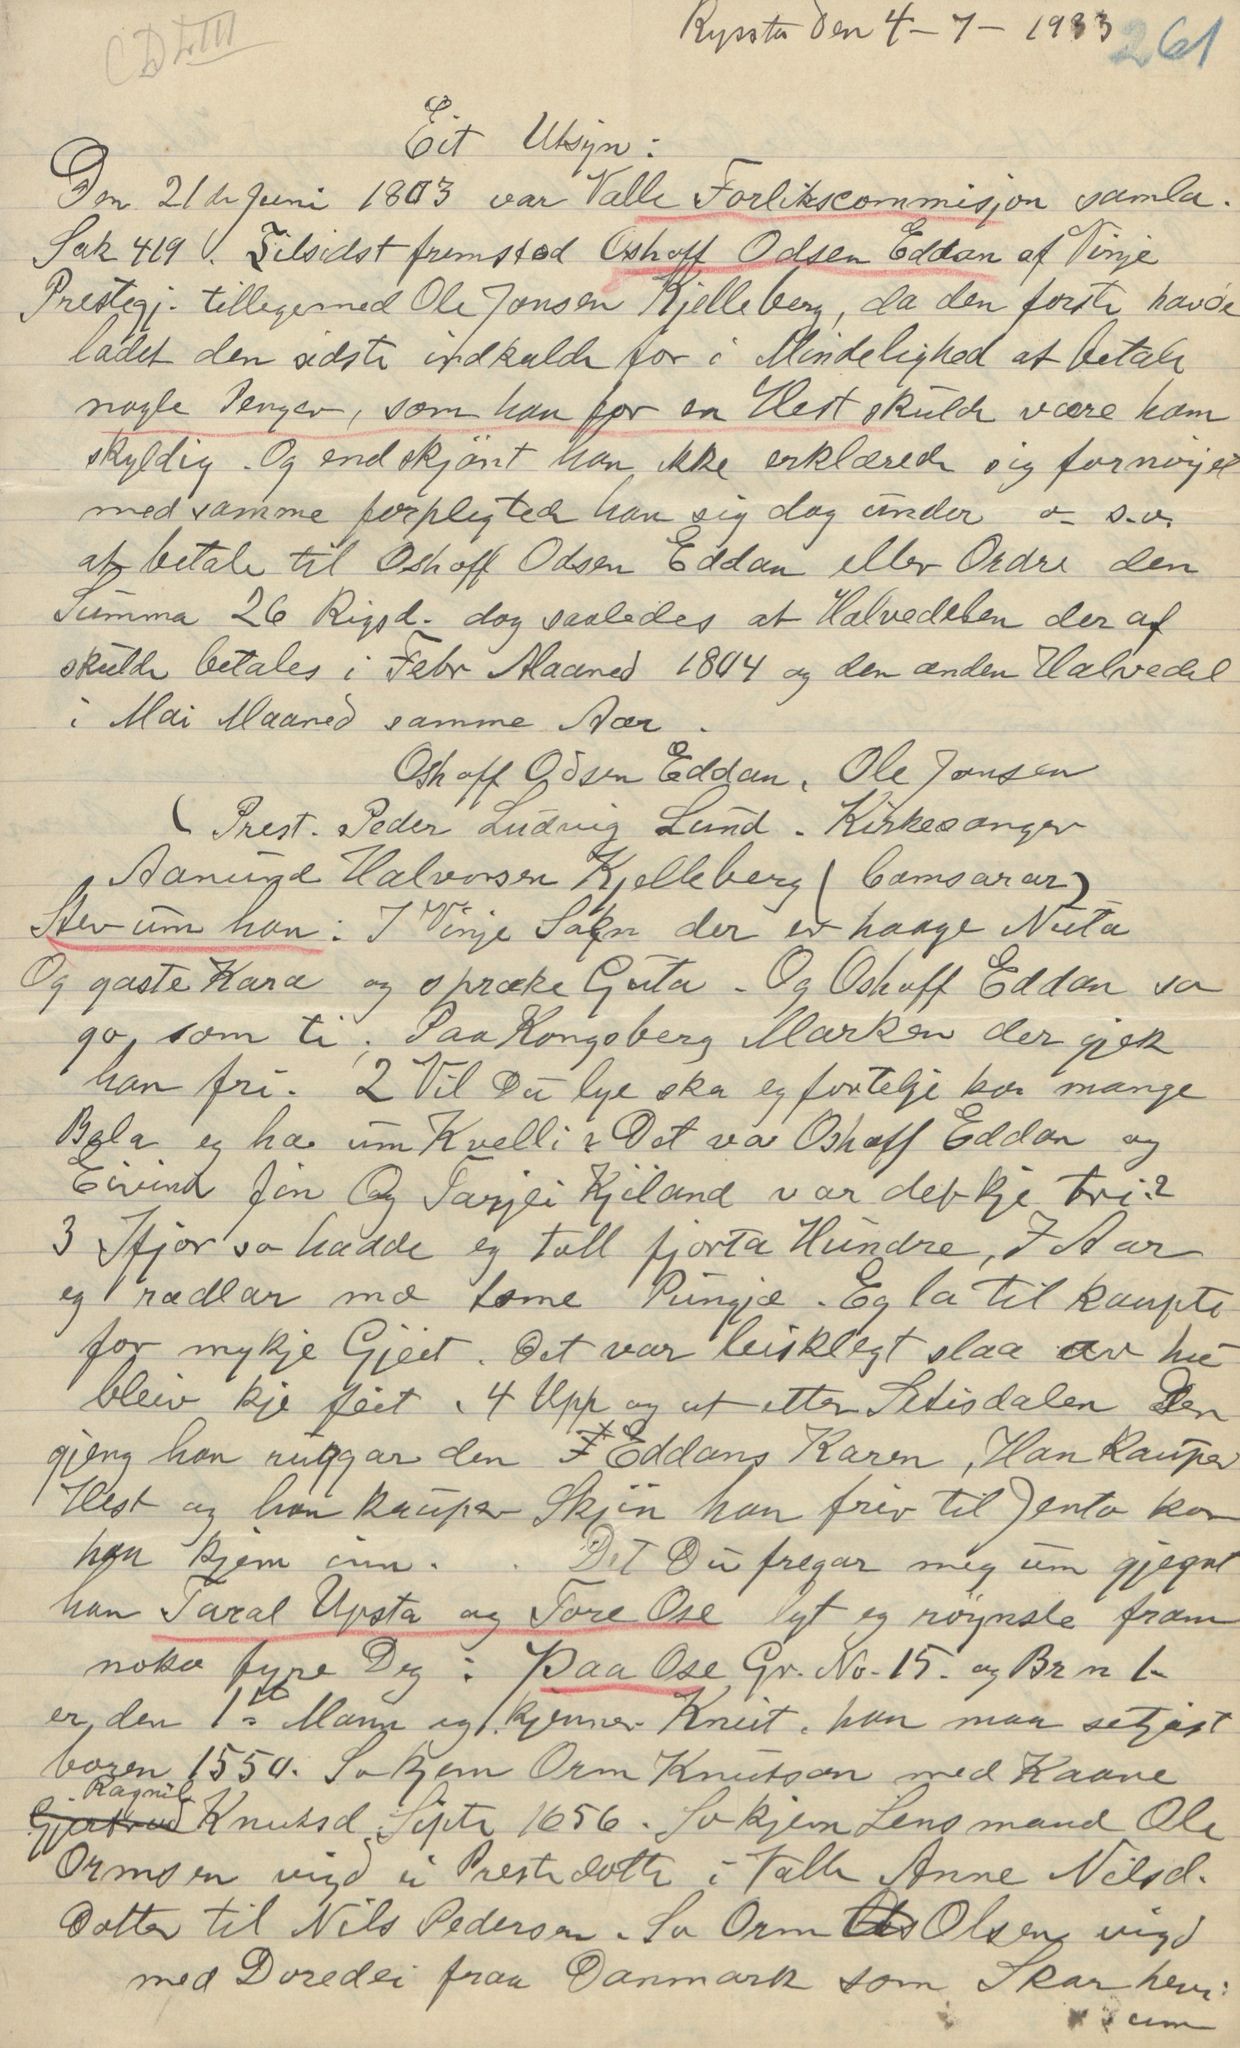 Rysstad den 4-7-1933 261
CDLIII
Eit Utsyn:
Den 21de Juni 1803 var Valle Forlikscommisjon samla.
Sak 419. Tilsidst fremstod Oshoff Odsen Eddan af Vinje
Prestegj. tilligemed Ole Jonsen Kjelleberg, da den første havde
ladet den sidste indkalde for i Mindelighed at betale
nogle Penger, som han for en Hest skulde være ham
skyldig. Og endskjønt han ikke erklærede sig fornøjet
med samme forpligtede han sig dog under o. s.v.
at betale til Oshoff Odsen Eddan eller Ordre den
Summa 26 Rigsd. dog saaledes at Halvedelen deraf
skulde betales i Febr Maaned 1804 og den anden Halvedel
i Mai Maaned samme Aar.
Oshoff Odsen Eddan. Ole Jonsen
(Prest. Peder Ludvig Lund. Kirkesanger
Aanund Halvorsen Kjelleberg (Comsarar)
Stev um han: I Vinje Sokn der er haage Nuta
Og gaste Kara og spræke Guta. Og Oshoff Eddan so
go, som ti, Paa Kongsberg Marken der gjek
han fri. 2 Vil Du lye ska eg fortelje kor mange
Bela eg ha um Kvelli? Det var Oshoff Eddan og
Eivind Jin Og Tarjei Kjiland var det kje tri?
3 Ifjor so hadde eg toll fjorta Hundre, I Aar
eg rædlar mæ tome Pungjæ. Eg la til kaupte
for mykje Gjeit. Det var leisklegt slaa av hu
bleiv kje feit. 4 Upp og ut etter Setisdalen Den
gjeng han ruggar den Eddans Karen, Han kauper
Hest og han kauper Skjin han friv til Jento kor
han kjem inn. Det Du fregar meg um gjegnt
han Taral Upsta og Tore Ose lyt eg røynsle fram
noko fyre Deg: Paa Ose Gr. No. 15. og Br n 1.
er, den 1ste Mann eg kjenner Knut. han maa setjast
boren 1550. So kjem Orm Knutson med Kaane
Ragnil
Gjertrud Knutsd Sipte 1656. So kjem Lensmand Ole
Ormsen vigd ei Prestedotte i Valle Anne Nilsd.
Dotter til Nils Pedersen. So Orm Olsen vigd
med Doredei fraa Danmark som Skar hevi:
um